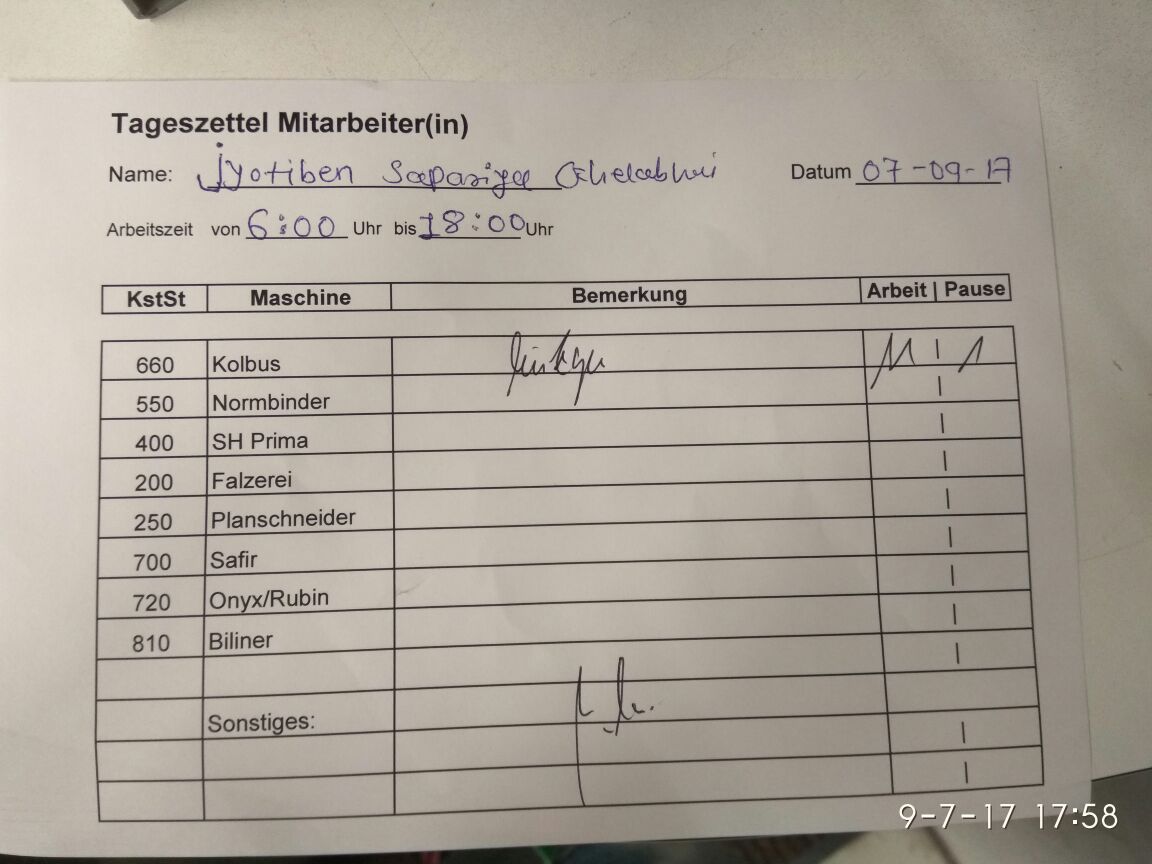 Tageszettel Mitarbeiter(in)
Name: Jyotiben Sapariya Ghelabhai Datum 07-09-17
Arbeitszeit von 6:00 Uhr bis 18:00 Uhr
KstSt Maschine Bemerkung Arbeit | Pause
660 Kolbus 11 | 1
550 Normbinder |
400 SH Prima |
200 Falzerei |
250 Planschneider |
700 Safir |
720 Onyx/Rubin |
810 Biliner |
Sonstiges: |
|
9-7-17 17:58